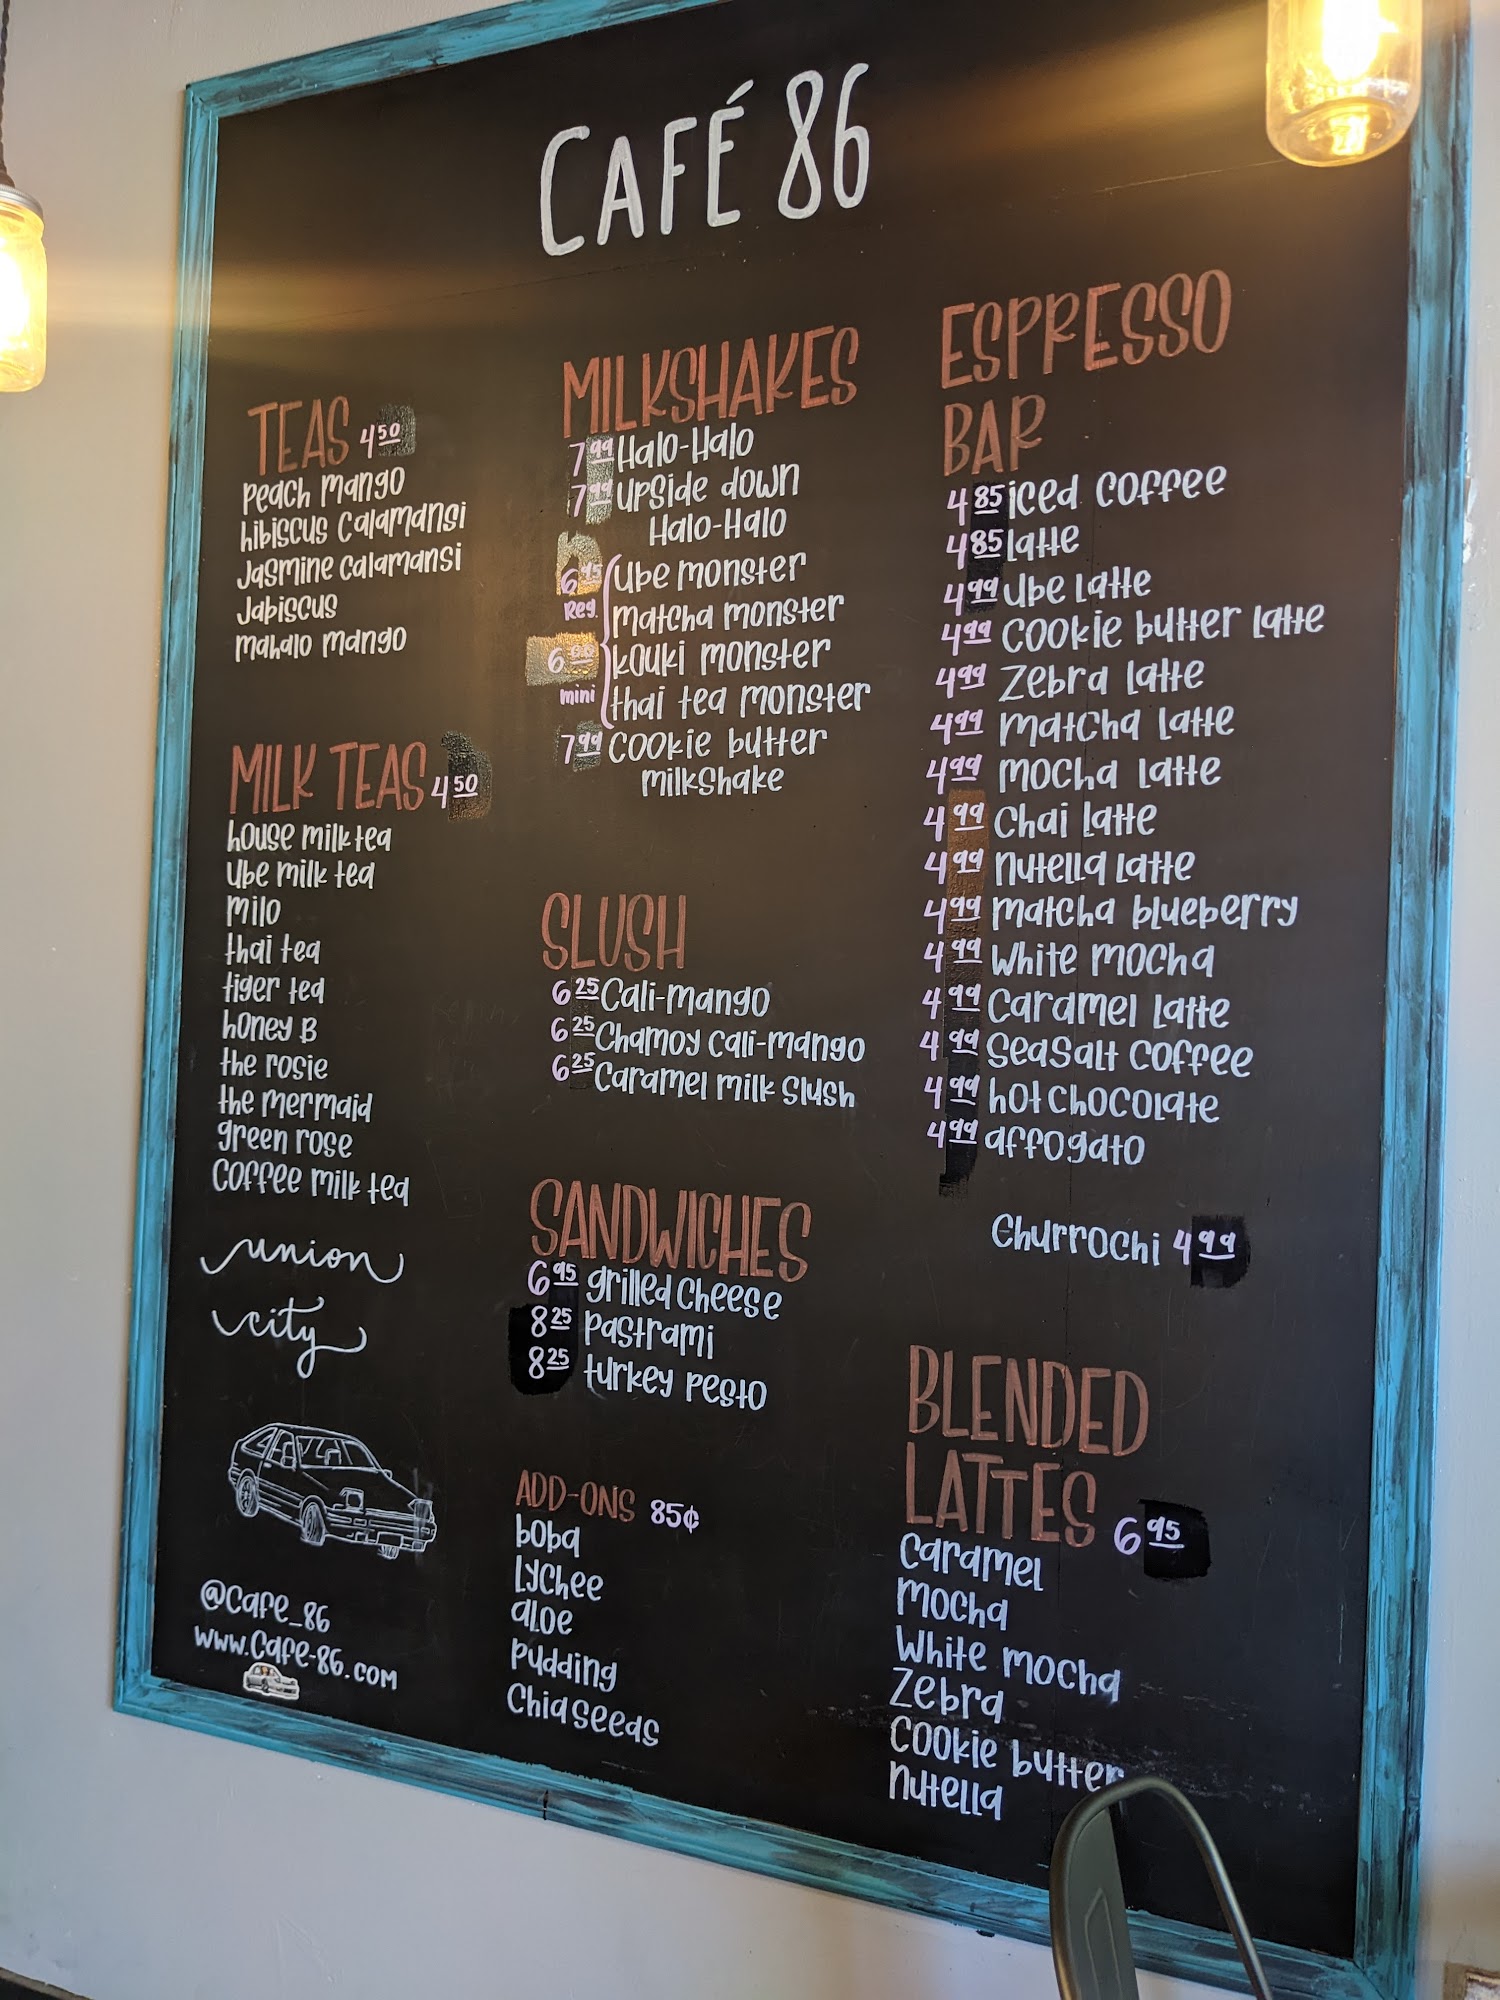 CAFÉ 86
TEAS 4.50
peach mango
hibiscus calamansi
Jasmine calamansi
Jabiscus
mahalo mango
MILK TEAS 4.50
house milk tea
ube milk tea
milo
thai tea
tiger tea
honey B
the rosie
the mermaid
green rose
coffee milk tea
union
city
@cafe_86
www.cafe-86.com
MILKSHAKES
7.99 Halo-Halo
7.99 upside down
Halo-Halo
6.95 Reg. ube monster
matcha monster
6.00 mini kouki monster
thai tea monster
7.99 cookie butter
milkshake
SLUSH
6.25 Cali-mango
6.25 Chamoy cali-mango
6.25 Caramel milk slush
SANDWICHES
6.95 grilled cheese
8.25 pastrami
8.25 turkey pesto
ADD-ONS 85¢
boba
lychee
aloe
pudding
Chia seeds
ESPRESSO
BAR
4.85 iced coffee
4.85 latte
4.99 ube latte
4.99 cookie butter latte
4.99 zebra latte
4.99 matcha latte
4.99 mocha latte
4.99 chai latte
4.99 nutella latte
4.99 matcha blueberry
4.99 white mocha
4.99 caramel latte
4.99 seasalt coffee
4.99 hot chocolate
4.99 affogato
Churrochi 4.99
BLENDED
LATTES 6.95
caramel
mocha
white mocha
zebra
cookie butter
nutella